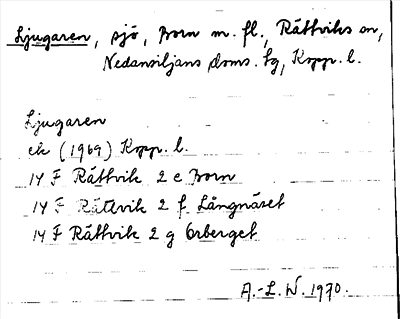 Ljugaren, sjö, Born m. fl., Rättviks sn,
Nedansiljans doms. tg, Kopp. l.
Ljugaren
ek (1969) Kopp. l.
14 F Rättvik 2 e Born
14 F Rättvik 2 f Långnäset
14 F Rättvik 2 g Orberget
A.-L. W. 1970.